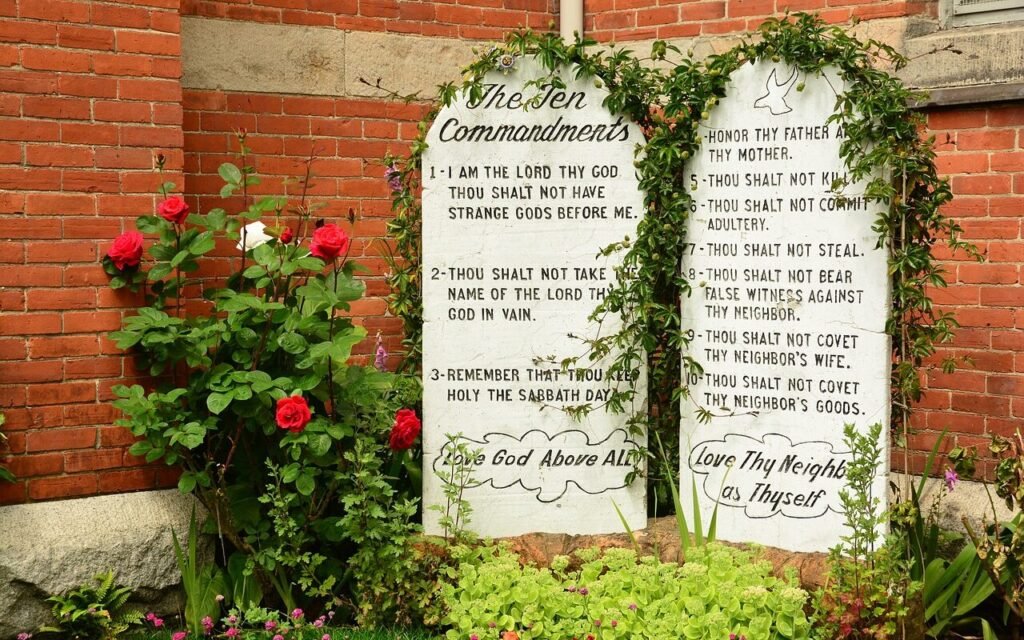 The Ten
Commandments
1-I AM THE LORD THY GOD
THOU SHALT NOT HAVE
STRANGE GODS BEFORE ME.
2-THOU SHALT NOT TAKE THE
NAME OF THE LORD THY
GOD IN VAIN.
3-REMEMBER THAT THOU KEEP
HOLY THE SABBATH DAY.
Love God Above All
-HONOR THY FATHER A
THY MOTHER.
5-THOU SHALT NOT KILL
6-THOU SHALT NOT COMMIT
ADULTERY.
7-THOU SHALT NOT STEAL.
8-THOU SHALT NOT BEAR
FALSE WITNESS AGAINST
THY NEIGHBOR.
9-THOU SHALT NOT COVET
THY NEIGHBOR'S WIFE.
10-THOU SHALT NOT COVET
THY NEIGHBOR'S GOODS.
Love Thy Neighb
as Thyself